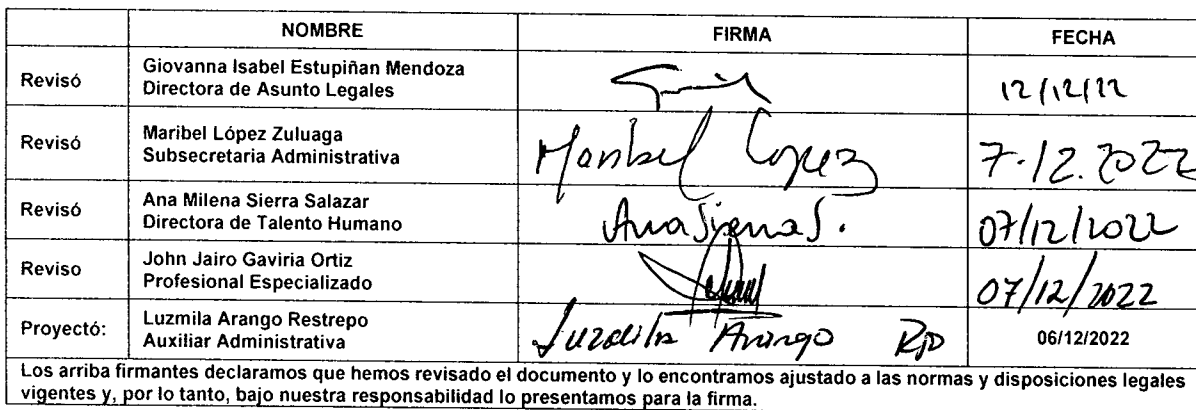 NOMBRE FIRMA FECHA
Revisó Giovanna Isabel Estupiñan Mendoza
Directora de Asunto Legales 12/12/22
Revisó Maribel López Zuluaga
Subsecretaria Administrativa Maribel Lopez 7.12.2022
Revisó Ana Milena Sierra Salazar
Directora de Talento Humano Ana Sierra S. 07/12/2022
Reviso John Jairo Gaviria Ortiz
Profesional Especializado 07/12/2022
Proyectó: Luzmila Arango Restrepo
Auxiliar Administrativa Luzmila Arango 06/12/2022
Los arriba firmantes declaramos que hemos revisado el documento y lo encontramos ajustado a las normas y disposiciones legales
vigentes y, por lo tanto, bajo nuestra responsabilidad lo presentamos para la firma.